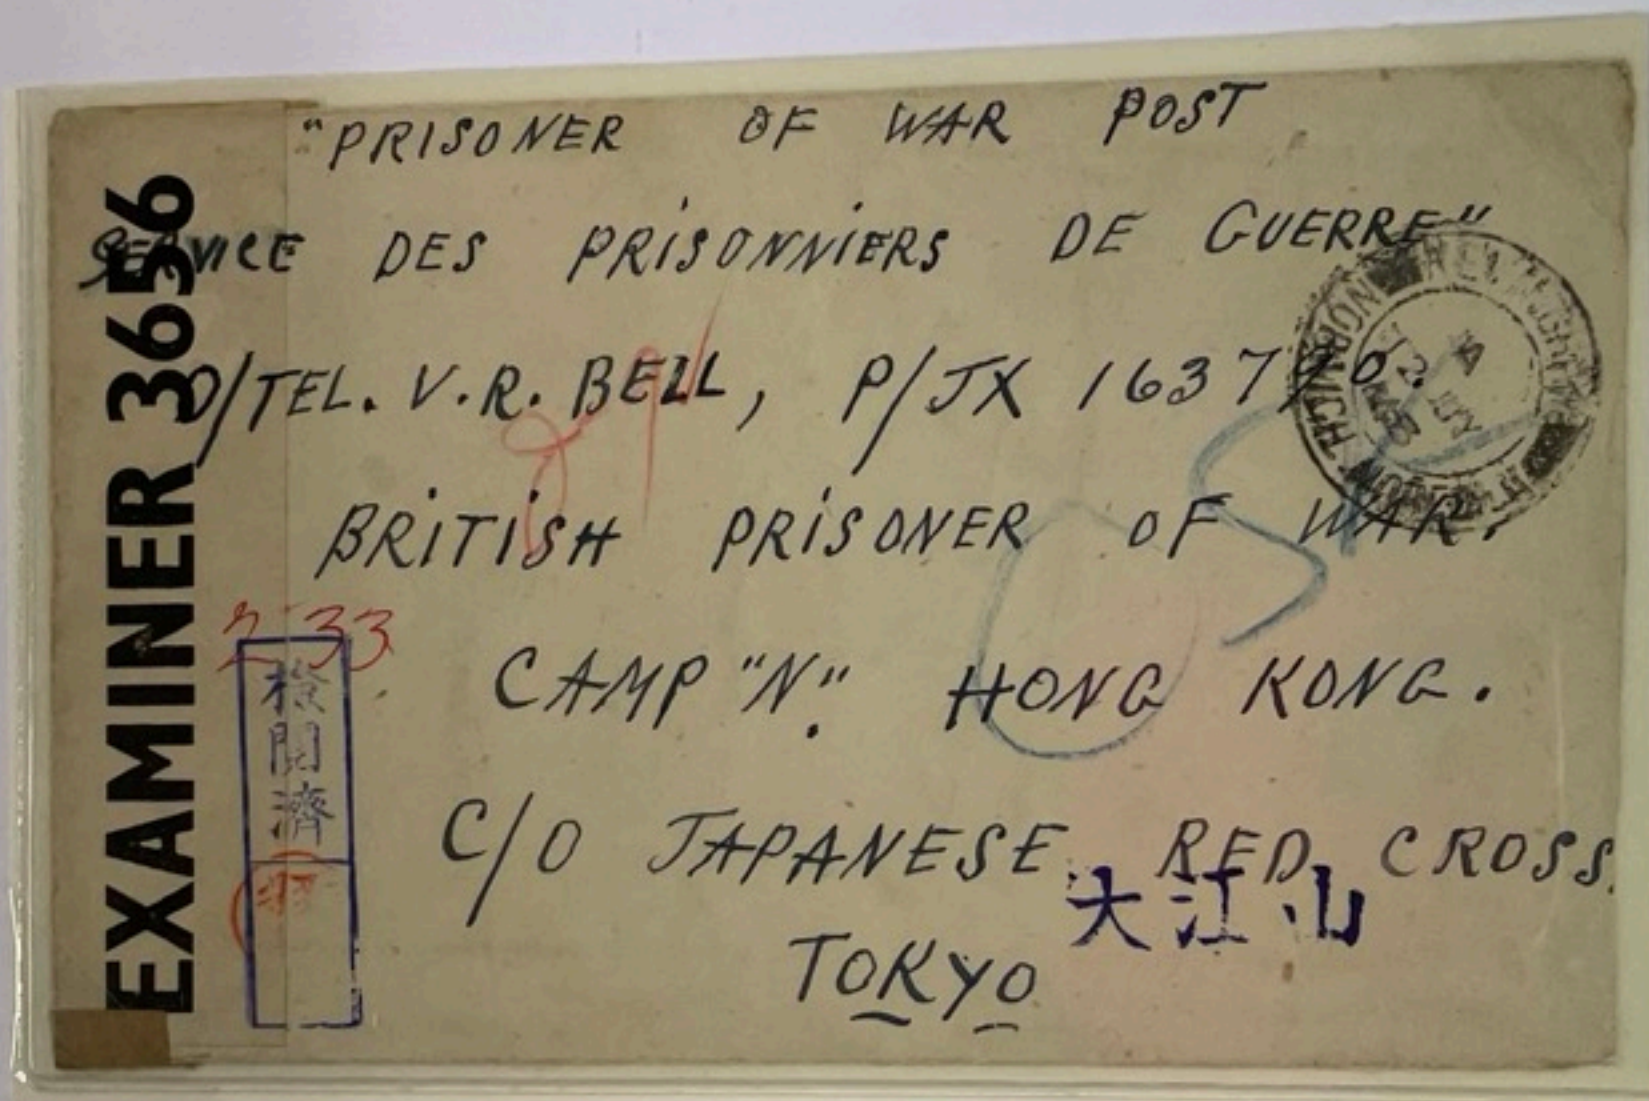 "PRISONER OF WAR POST
SERVICE DES PRISONNIERS DE GUERRE"
O/TEL. V.R. BELL, P/JX 163770.
BRITISH PRISONER OF WAR.
CAMP "N". HONG KONG.
C/O JAPANESE RED CROSS.
TOKYO
EXAMINER 3656
2 33
検閲濟
大江山
NORWICH